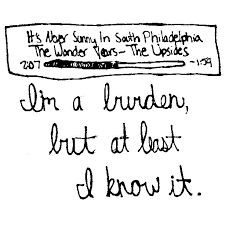 It's Never Sunny In South Philadelphia
The Wonder Years - The Upsides
2:07 -1:29
I'm a burden,
but at least
I know it.